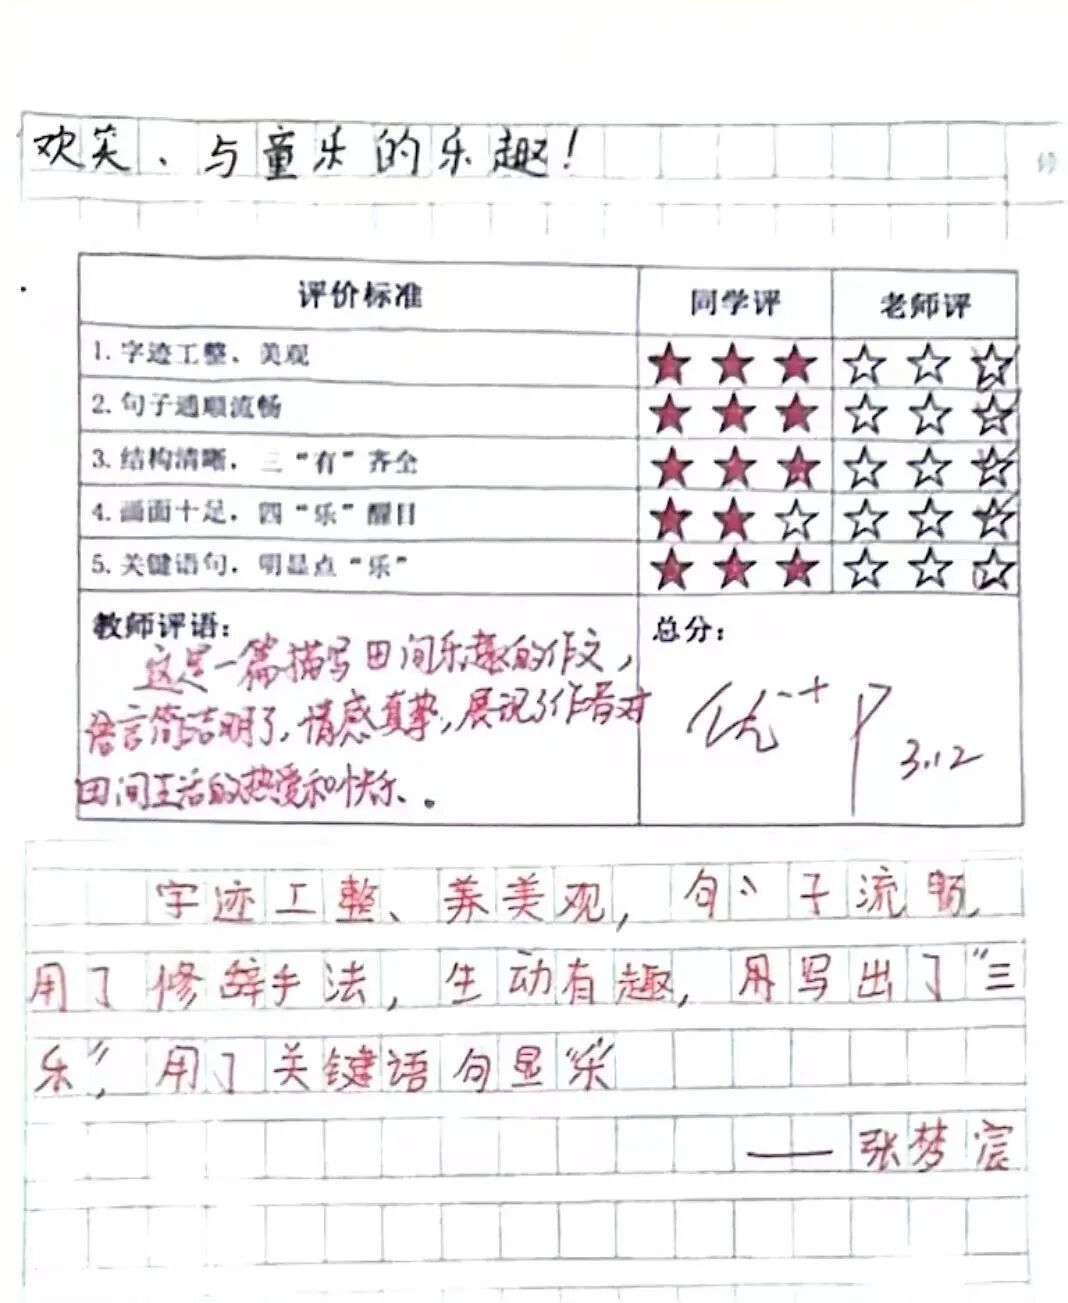 欢笑、与童乐的乐趣！
评价标准 同学评 老师评
1. 字迹工整、美观
2. 句子通顺流畅
3. 结构清晰，三“有”齐全
4. 画面十足，四“乐”醒目
5. 关键语句，明显点“乐”
教师评语：
这是一篇描写田间乐趣的作文，
语言简洁明了，情感真挚，展现了作者对
田间生活的热爱和快乐。
总分：
优++
3.12
字迹工整、养美观，句子流畅，
用了修辞手法，生动有趣，用写出了“三
乐”，用了关键语句显“乐”
——张梦宸